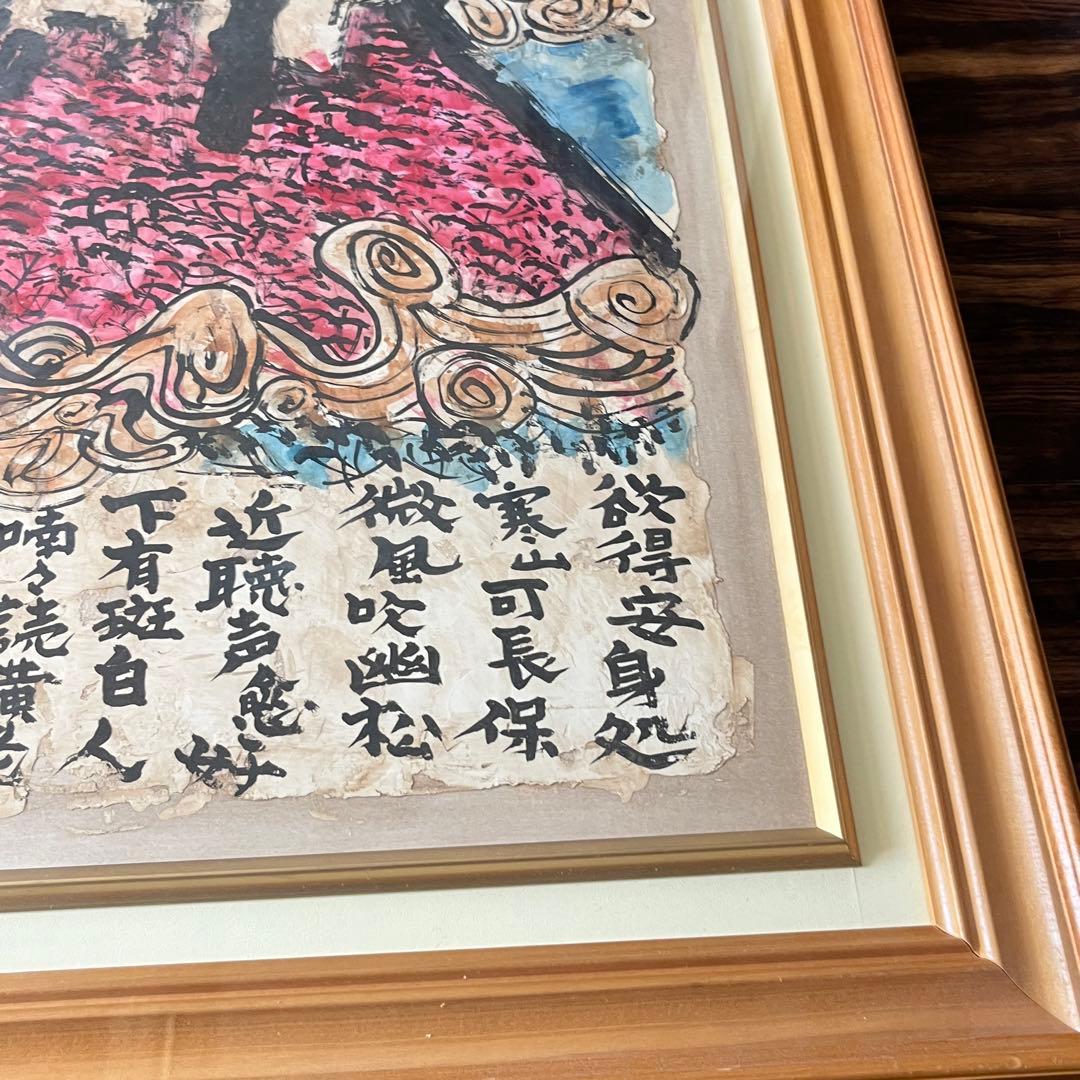 欲得安身処
寒山可長保
微風吹幽松
近聴声愈好
下有斑白人
喃々読黄老